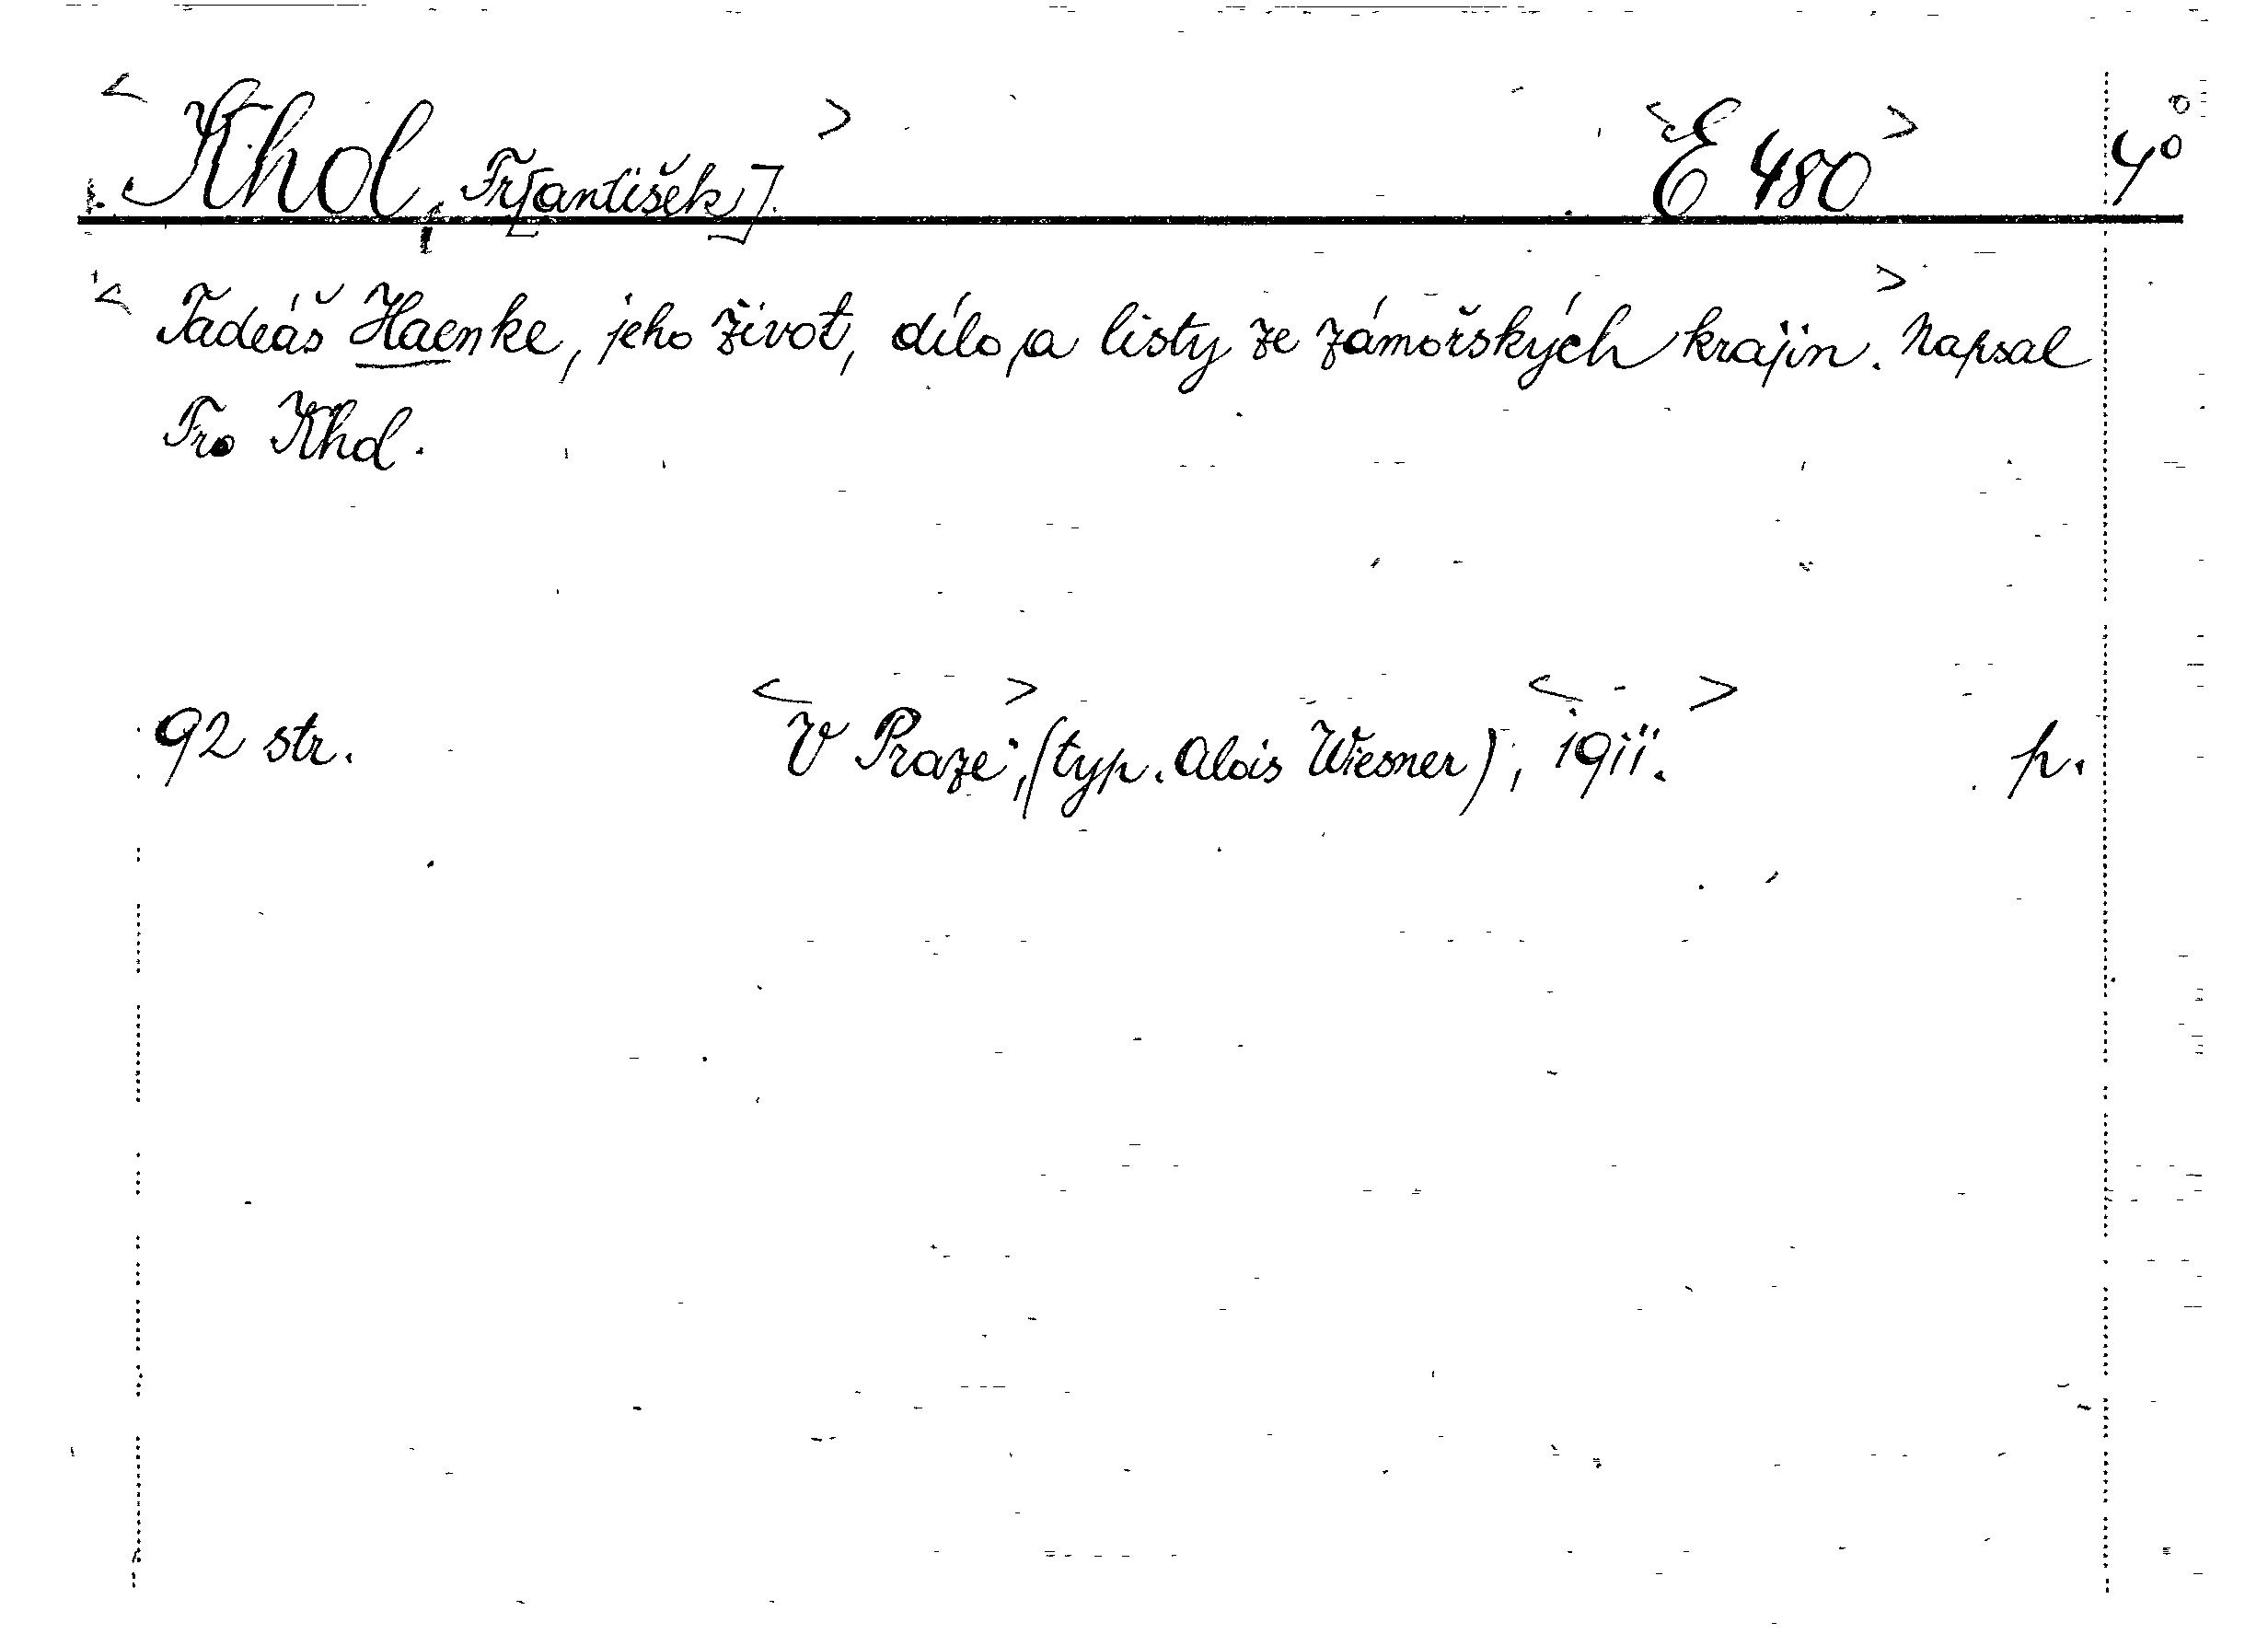 <Khol, Fr[antišek].> <E 480> 4°
<Tadeáš Haenke, jeho život, dílo, a listy ze zámořských krajin.> Napsal
Fr. Khol.
92 str. <V Praze>, (typ. Alois Wiesner), <1911.> p.